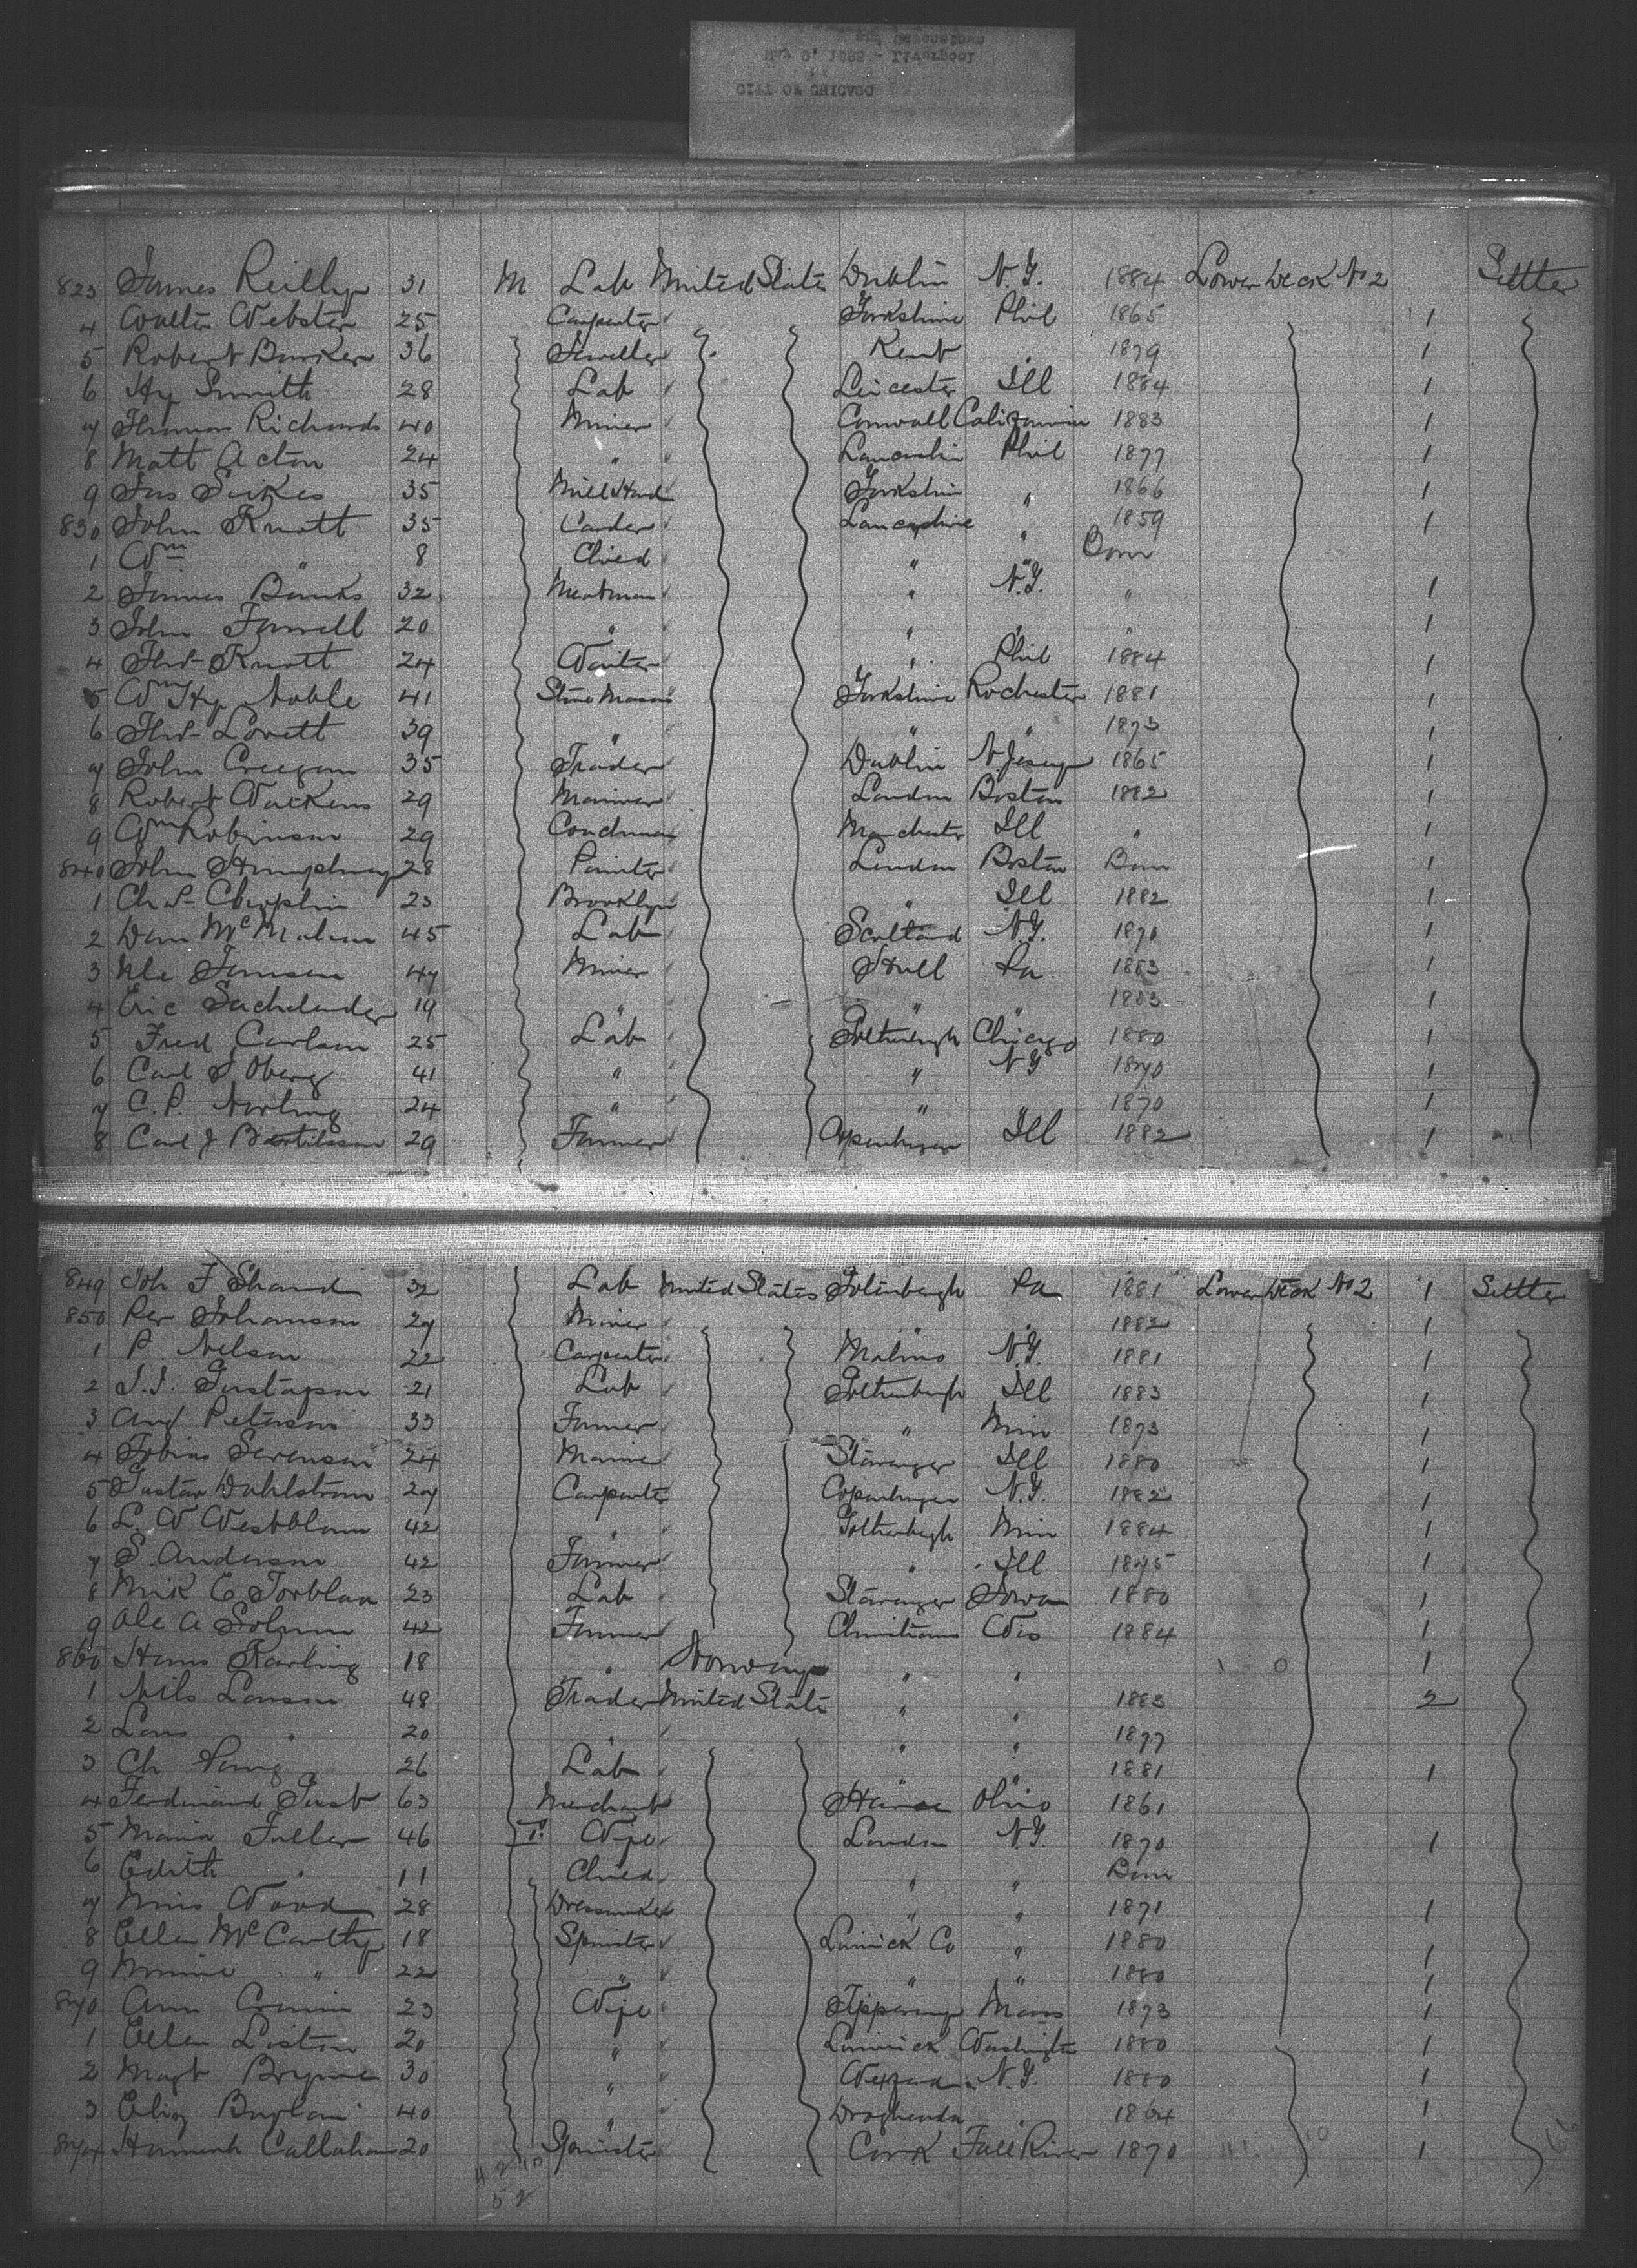 CITY OF CHICAGO
823 James Reilly 31 M Lab United States Dublin N.Y. 1884 Lower Deck No 2 Settler
4 Walter Webster 25 Carpenter Yorkshire Phil 1865 1
5 Robert Barker 36 Jeweller Kent " 1879 1
6 Hy Smith 28 Lab Leicester Ill 1884 1
7 Thomas Richards 40 Miner Cornwall California 1883 1
8 Matt Acton 24 " Lancashire Phil 1877 1
9 Jas Sykes 35 Mill Hand Yorkshire " 1866 1
830 John Knott 35 Carder Lancashire " 1859 1
1 Wm " 8 Child " " Born
2 James Banks 32 Meatman " N.Y. " 1
3 John Farrell 20 " " " " 1
4 Thos Knott 24 Waiter " Phil 1884 1
5 Wm Hy Noble 41 Stone Mason Yorkshire Rochester 1881 1
6 Thos Lovett 39 " " " 1873 1
7 John Creegan 35 Trader Dublin N Jersey 1865 1
8 Robert Watkins 29 Mariner London Boston 1882 1
9 Wm Robinson 29 Coachman Manchester Ill " 1
840 John Humphrey 28 Painter London Boston Born 1
1 Chas Chaplin 23 Brooklyn " Ill 1882 1
2 Dan McMahon 45 Lab Scotland N.Y. 1870 1
3 Nls Jansen 47 Miner Hull Pa 1883 1
4 Eric 19 " " " 1883 1
5 Fred Carlson 25 Lab Gothenburgh Chicago 1880 1
6 Carl J Oberg 41 " " N.Y 1870 1
7 C. P. Norling 24 " " 1870 1
8 Carl J Bertilsson 29 Farmer Copenhagen Ill 1882 1
849 Joh F Strand 32 Lab United States Gotenburgh Pa 1881 Lower Deck No 2 1 Settler
850 Per Johanson 27 Miner " " 1882 1
1 P. Nelson 22 Carpenter Malmo N.Y. 1881 1
2 J. J. Gustafson 21 Lab Gothenburgh Ill 1883 1
3 Aug Peterson 33 Farmer " Min 1873 1
4 Tobias Sorenson 24 Marine Stavanger Ill 1880 1
5 Gustav Dahlstrom 27 Carpenter Copenhagen N.Y. 1882 1
6 L. W Westblom 42 " Gothenburgh Min 1884 1
7 S. Anderson 42 Farmer " Ill 1875 1
8 Mik E Torblaa 23 Lab Stavanger Iowa 1880 1
9 Ole A Solum 42 Farmer Christiana Wis 1884 1
860 Hans Karling 18 " Norway " " 1
1 Nils Larson 48 Trader United States " " 1883 2
2 Lars " 20 " " " 1877
3 Ch 26 Lab " " 1881 1
4 Ferdinand Just 63 Merchant Ohio 1861
5 Maria Fuller 46 F. Wife London N.Y. 1870 1
6 Edith " 11 Child " " Born
7 Miss Wood 28 Dressmaker " " 1871 1
8 Ellen McCarthy 18 Spinster Limrick Co " 1880 1
9 Minnie " 22 " " " 1880 1
870 Ann Cronin 23 Wife Tipperary Mass 1873 1
1 Ellen Liston 20 " Limerick Washington 1880 1
2 Magt Bryne 30 " Wexford N.Y. 1880 1
3 Eliz 40 " Drogheda " 1864 1
874 Hannah Callahan 20 Spinster Cork Fall River 1870 1